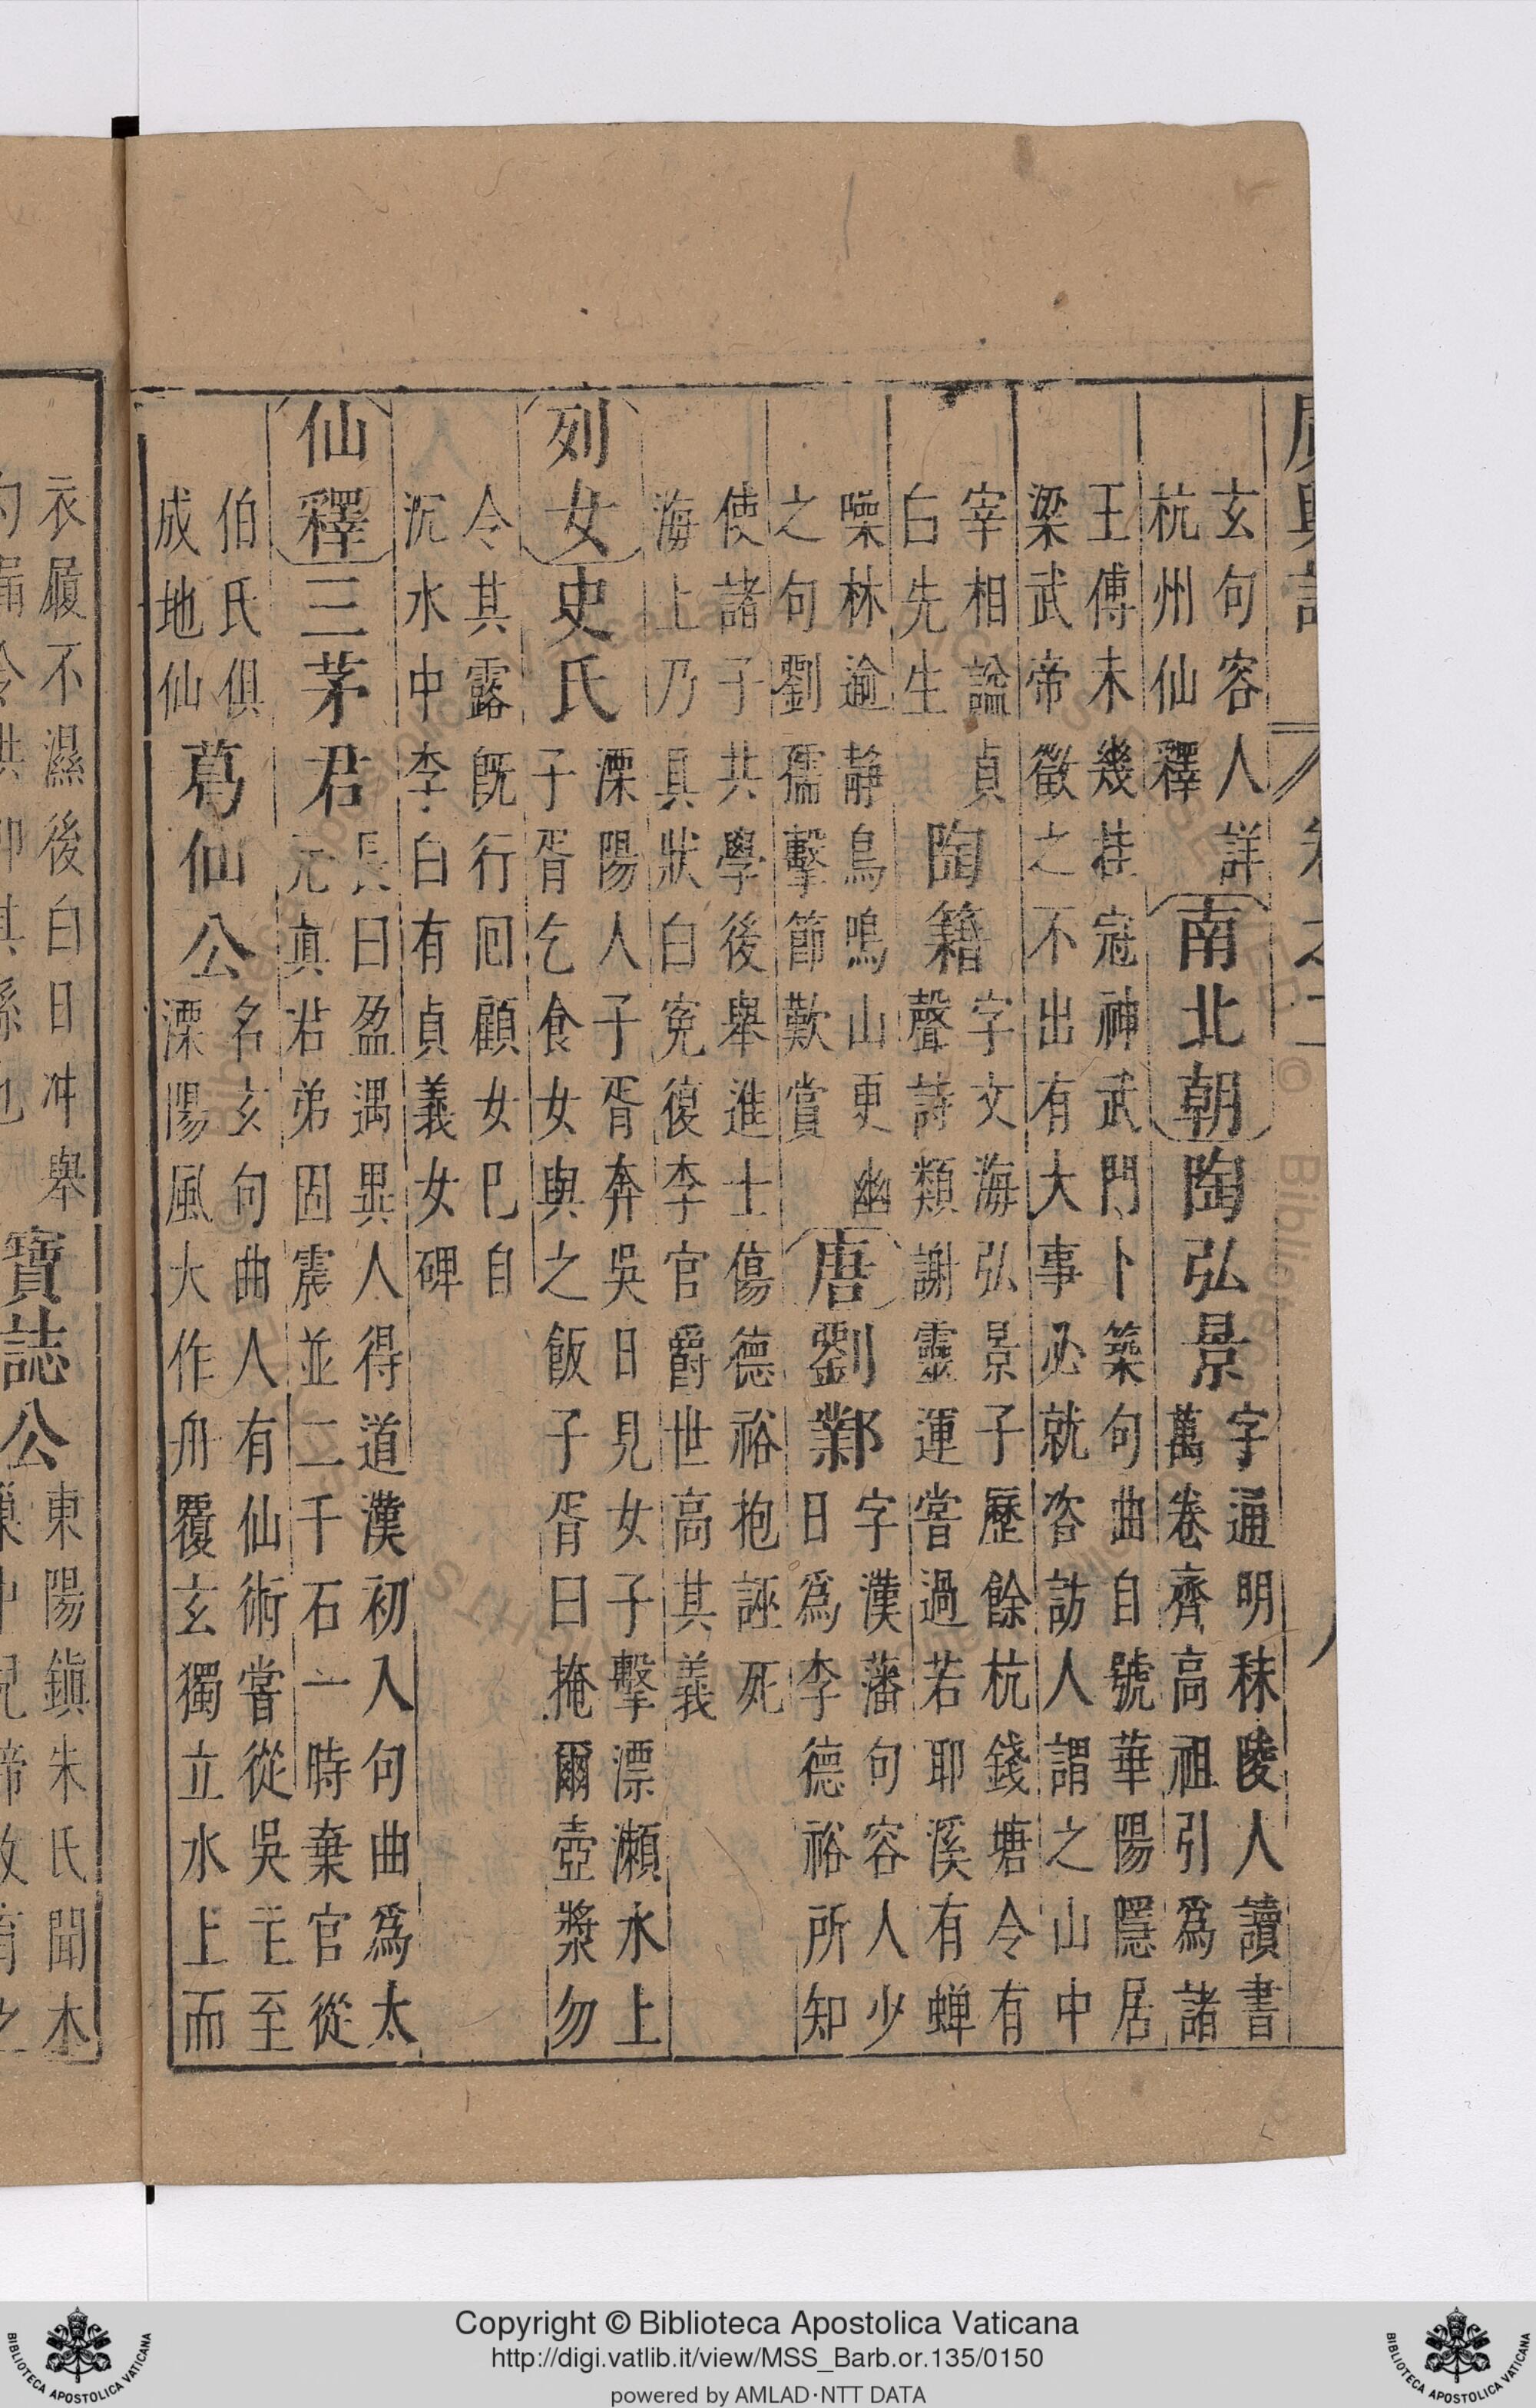 玄句容人詳
杭州仙釋
南北朝陶弘景
字通明秣陵人讀書
萬卷齊高祖引爲諸
王傅未幾挂冠神武門卜築句曲自號華陽隱居
梁武帝徵之不出有大事必就咨訪人謂之山中
宰相諡貞
白先生
陶籍
字文海弘景子歷餘杭錢塘令有
聲詩類謝靈運嘗過若耶溪有蟬
噪林逾静鳥鳴山更幽
之句劉孺擊節歎賞
唐劉鄴
字漢藩句容人少
日爲李德裕所知
使諸子共學後舉進士傷德裕抱誣死
海上乃具狀白寃復李官爵世高其義
列女史氏
溧陽人子胥奔吳日見女子擊漂瀬水上
子胥乞食女與之飯子胥曰掩爾壺漿勿
令其露旣行囘顧女巳自
沉水中李白有貞義女碑
仙釋三茅君
長曰盈遇異人得道漢初入句曲爲太
元眞君弟固震並二千石一時棄官從
伯氏俱
成地仙
葛仙公
名玄句曲人有仙術嘗從吳主至
溧陽風大作舟覆玄獨立水上而
衣履不濕後白日冲舉
寶誌公
東陽鎭朱氏聞木
Copyright © Biblioteca Apostolica Vaticana
http://digi.vatlib.it/view/MSS_Barb.or.135/0150
powered by AMLAD·NTT DATA